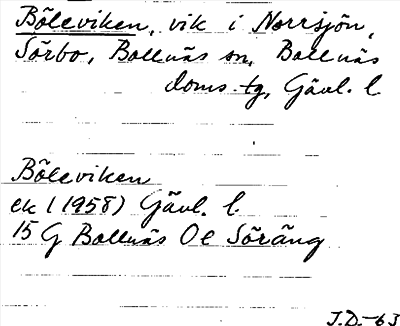 Böleviken, vik i Norrsjön,
Sörbo, Bollnäs sn, Bollnäs
doms.tg, Gävl. l.
Böleviken
ek (1958) Gävl. l.
15 G Bollnäs Oe Söräng
J.D.-63